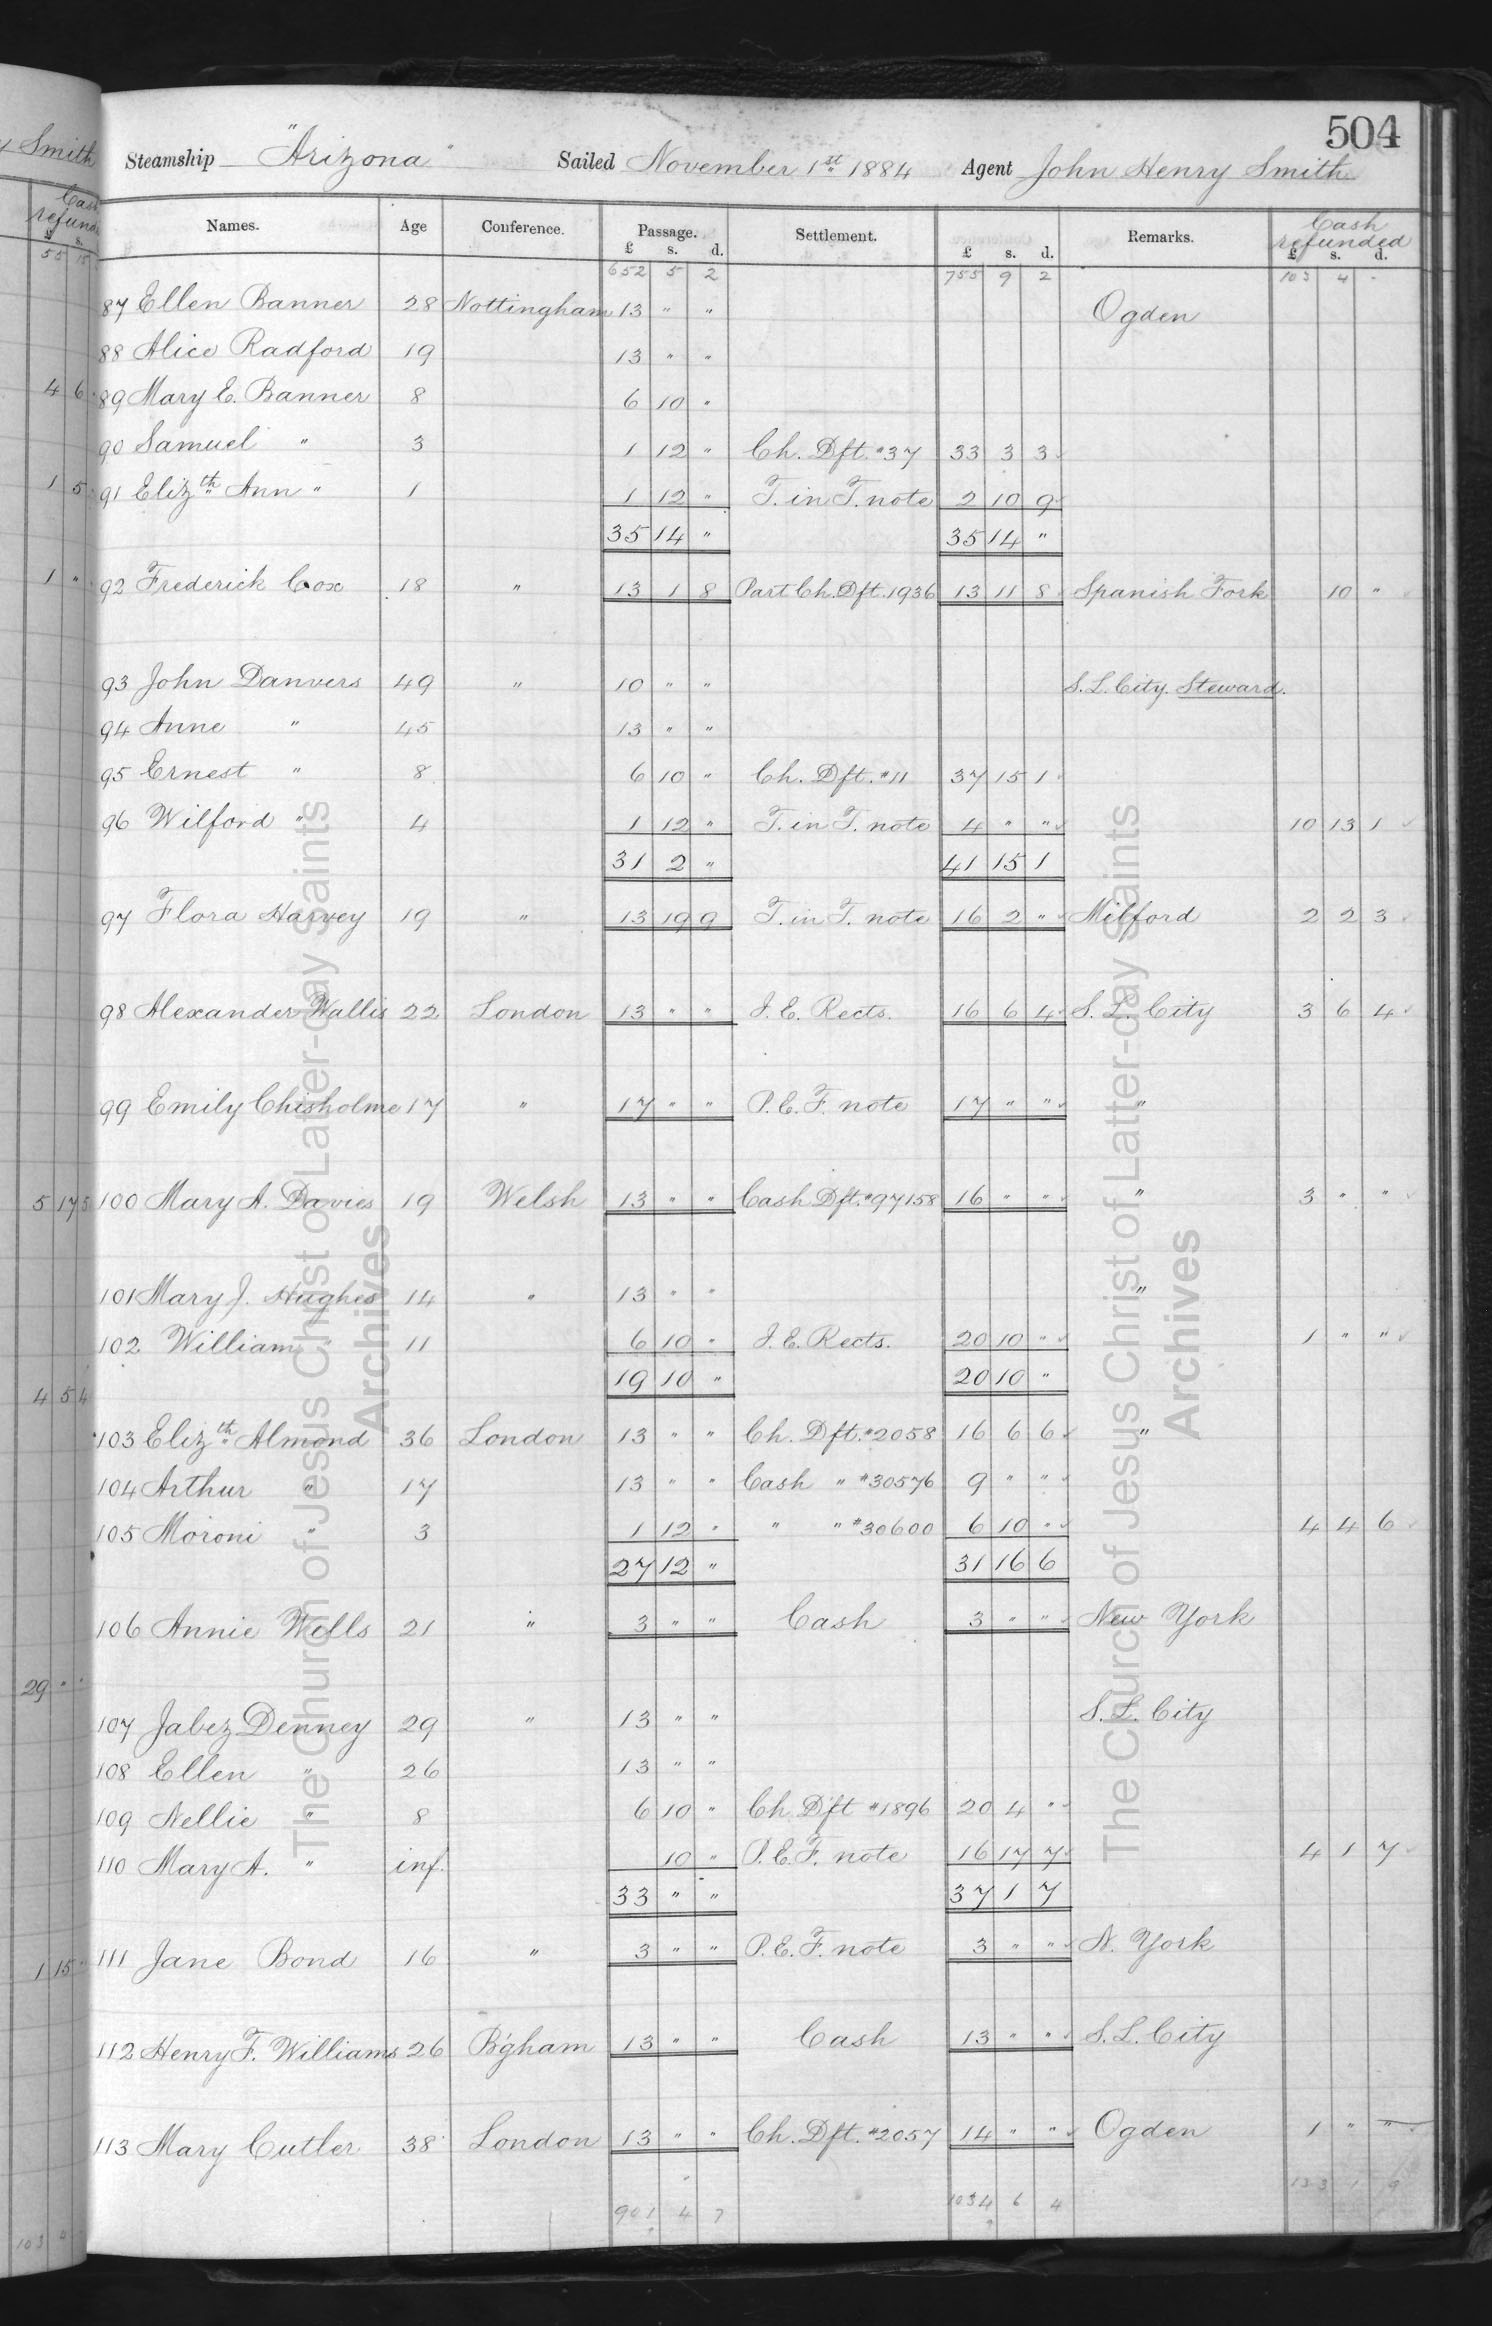 504
Steamship "Arizona" Sailed November 1st 1884 Agent John Henry Smith
Names. Age Conference. Passage. £ s. d. Settlement. £ s. d. Remarks. Cash refunded £ s. d.
652 5 2 755 9 2 103 4 -
87 Ellen Banner 28 Nottingham 13 " " Ogden
88 Alice Radford 19 13 " "
89 Mary E. Banner 8 6 10 "
90 Samuel " 3 1 12 " Ch. Dft. #37 33 3 3
91 Elizth Ann " 1 1 12 " T. in T. note 2 10 9
35 14 " 35 14 "
92 Frederick Cox 18 " 13 1 8 Part Ch. Dft. 1936 13 11 8 Spanish Fork 10 "
93 John Danvers 49 " 10 " " S. L. City. Steward.
94 Anne " 45 13 " "
95 Ernest " 8 6 10 " Ch. Dft. #11 37 15 1
96 Wilford " 4 1 12 " T. in T. note 4 " " 10 13 1
31 2 " 41 15 1
97 Flora Harvey 19 " 13 19 9 T. in T. note 16 2 " Milford 2 2 3
98 Alexander Wallis 22 London 13 " " I. E. Rects. 16 6 4 S. L. City 3 6 4
99 Emily Chisholme 17 " 17 " " P. E. F. note 17 " " "
100 Mary A. Davies 19 Welsh 13 " " Cash Dft. #97158 16 " " " 3 " "
101 Mary J. Hughes 14 " 13 " " "
102 William " 11 6 10 " I. E. Rects. 20 10 " 1 " "
19 10 " 20 10 "
103 Elizth Almond 36 London 13 " " Ch. Dft. #2058 16 6 6 "
104 Arthur " 17 13 " " Cash " #30576 9 " "
105 Moroni " 3 1 12 " " " #30600 6 10 " 4 4 6
27 12 " 31 16 6
106 Annie Wells 21 " 3 " " Cash 3 " " New York
107 Jabez Denney 29 " 13 " " S. L. City
108 Ellen " 26 13 " "
109 Nellie " 8 6 10 " Ch Dft #1896 20 4 "
110 Mary A. " inf. 10 " P. E. F. note 16 17 7 4 1 7
33 " " 37 1 7
111 Jane Bond 16 " 3 " " P. E. F. note 3 " " N. York
112 Henry F. Williams 26 B'gham 13 " " Cash 13 " " S. L. City
113 Mary Cutler 38 London 13 " " Ch. Dft. #2057 14 " " Ogden 1 " "
901 4 7 1034 6 4 133 1 9
The Church of Jesus Christ of Latter-day Saints
Archives
The Church of Jesus Christ of Latter-day Saints
Archives
y Smith
Cash
refund
£ s.
55 15
4 6
1 5
1 "
5 17 5
4 5 4
29 " "
1 15 "
103 4